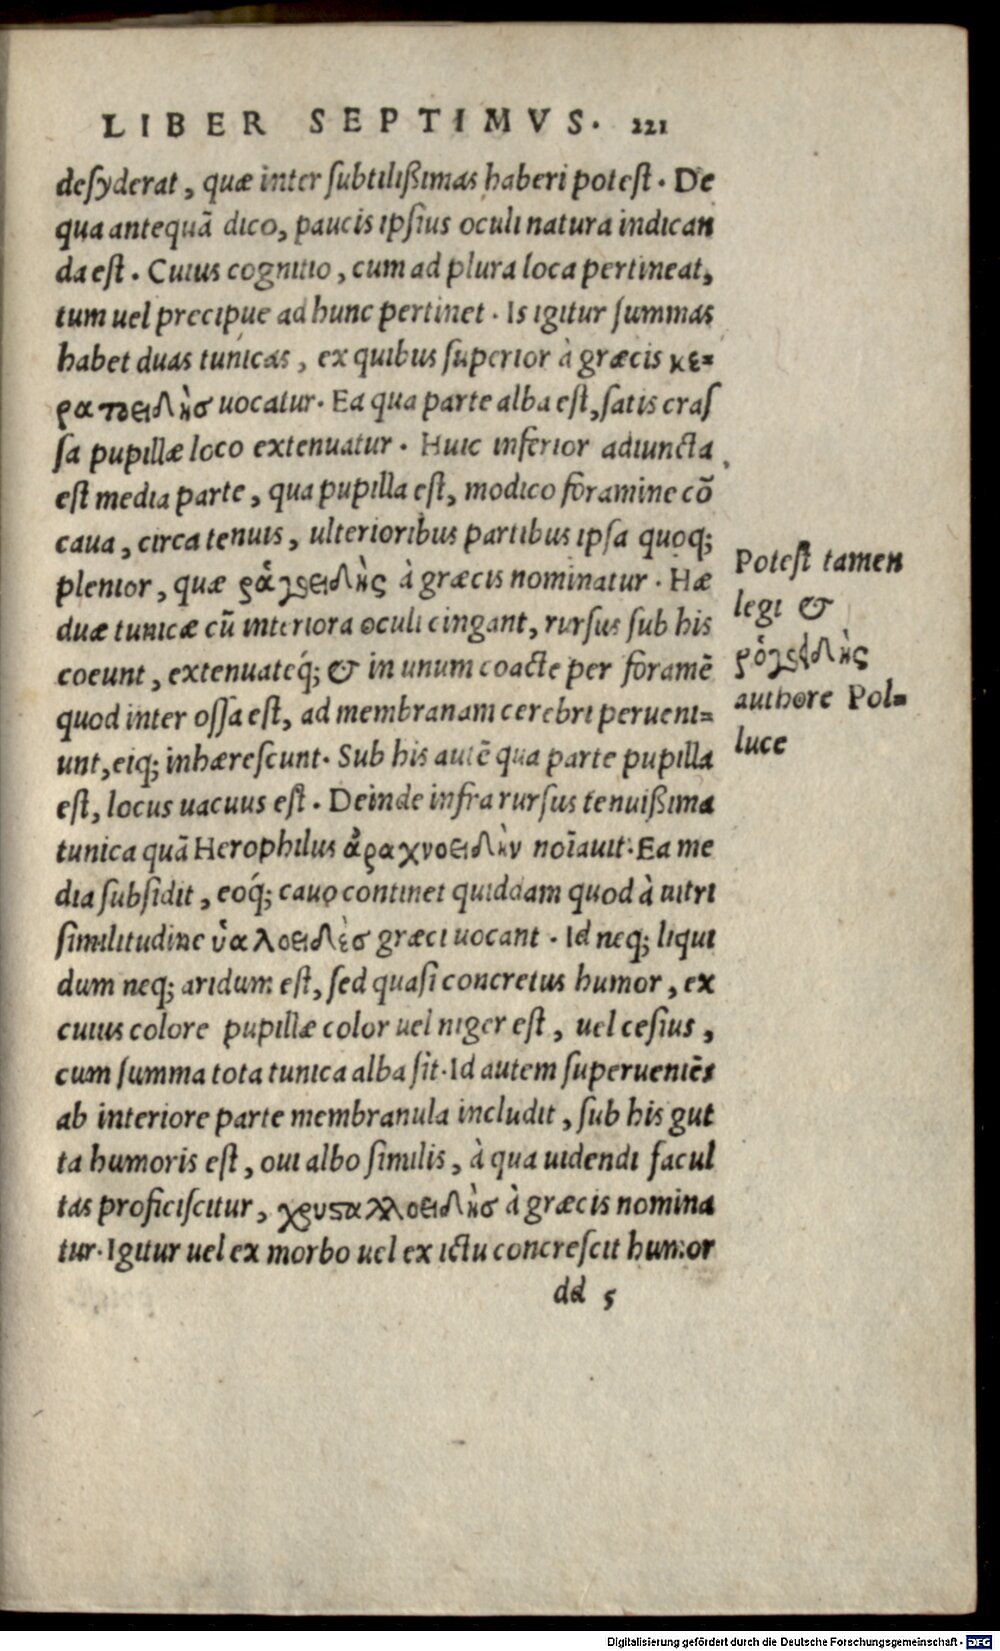 LIBER SEPTIMVS. 221
desyderat, quæ inter subtilißimas haberi potest. De
qua antequā dico, paucis ipsius oculi natura indican
da est. Cuius cognitio, cum ad plura loca pertineat,
tum uel precipue ad hunc pertinet. Is igitur summas
habet duas tunicas, ex quibus superior à græcis κε=
ρατοειδὴσ uocatur. Ea qua parte alba est, satis cras
sa pupillæ loco extenuatur. Huic inferior adiuncta
est media parte, qua pupilla est, modico foramine cō
caua, circa tenuis, ulterioribus partibus ipsa quoq;
plenior, quæ ῥαγοειδὴς à græcis nominatur. Hæ
duæ tunicæ cū interiora oculi cingant, rursus sub his
coeunt, extenuateq́; & in unum coacte per foramē
quod inter ossa est, ad membranam cerebri perueni=
unt, eiq; inhærescunt. Sub his autē qua parte pupilla
est, locus uacuus est. Deinde infra rursus tenuißima
tunica quā Herophilus ἀραχνοειδὴν noīauit. Ea me
dia subsidit, eoq́; cauo continet quiddam quod à uitri
similitudine ὑαλοειδὲσ græci uocant. Id neq; liqui
dum neq; aridum est, sed quasi concretus humor, ex
cuius colore pupillæ color uel niger est, uel cesius,
cum summa tota tunica alba sit. Id autem superueniēs
ab interiore parte membranula includit, sub his gut
ta humoris est, oui albo similis, à qua uidendi facul
tas proficiscitur, χρυσταλλοειδὴσ à græcis nomina
tur. Igitur uel ex morbo uel ex ictu concrescit humor
dd 5
Potest tamen
legi &
ῥογοειδὴς
authore Pol=
luce
Digitalisierung gefördert durch die Deutsche Forschungsgemeinschaft - DFG